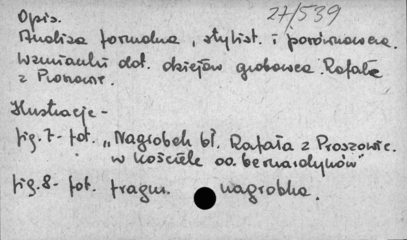 27/539
Opis.
Analiza formalna, stylist. i porównawcza.
Wzmianki dot. dziejów grobowca Rafała
z Proszowic.
Ilustracje -
fig. 7 - fot. „Nagrobek bł. Rafała z Proszowic.
w kościele oo. bernardynów"
fig. 8 - fot. fragm. nagrobka.